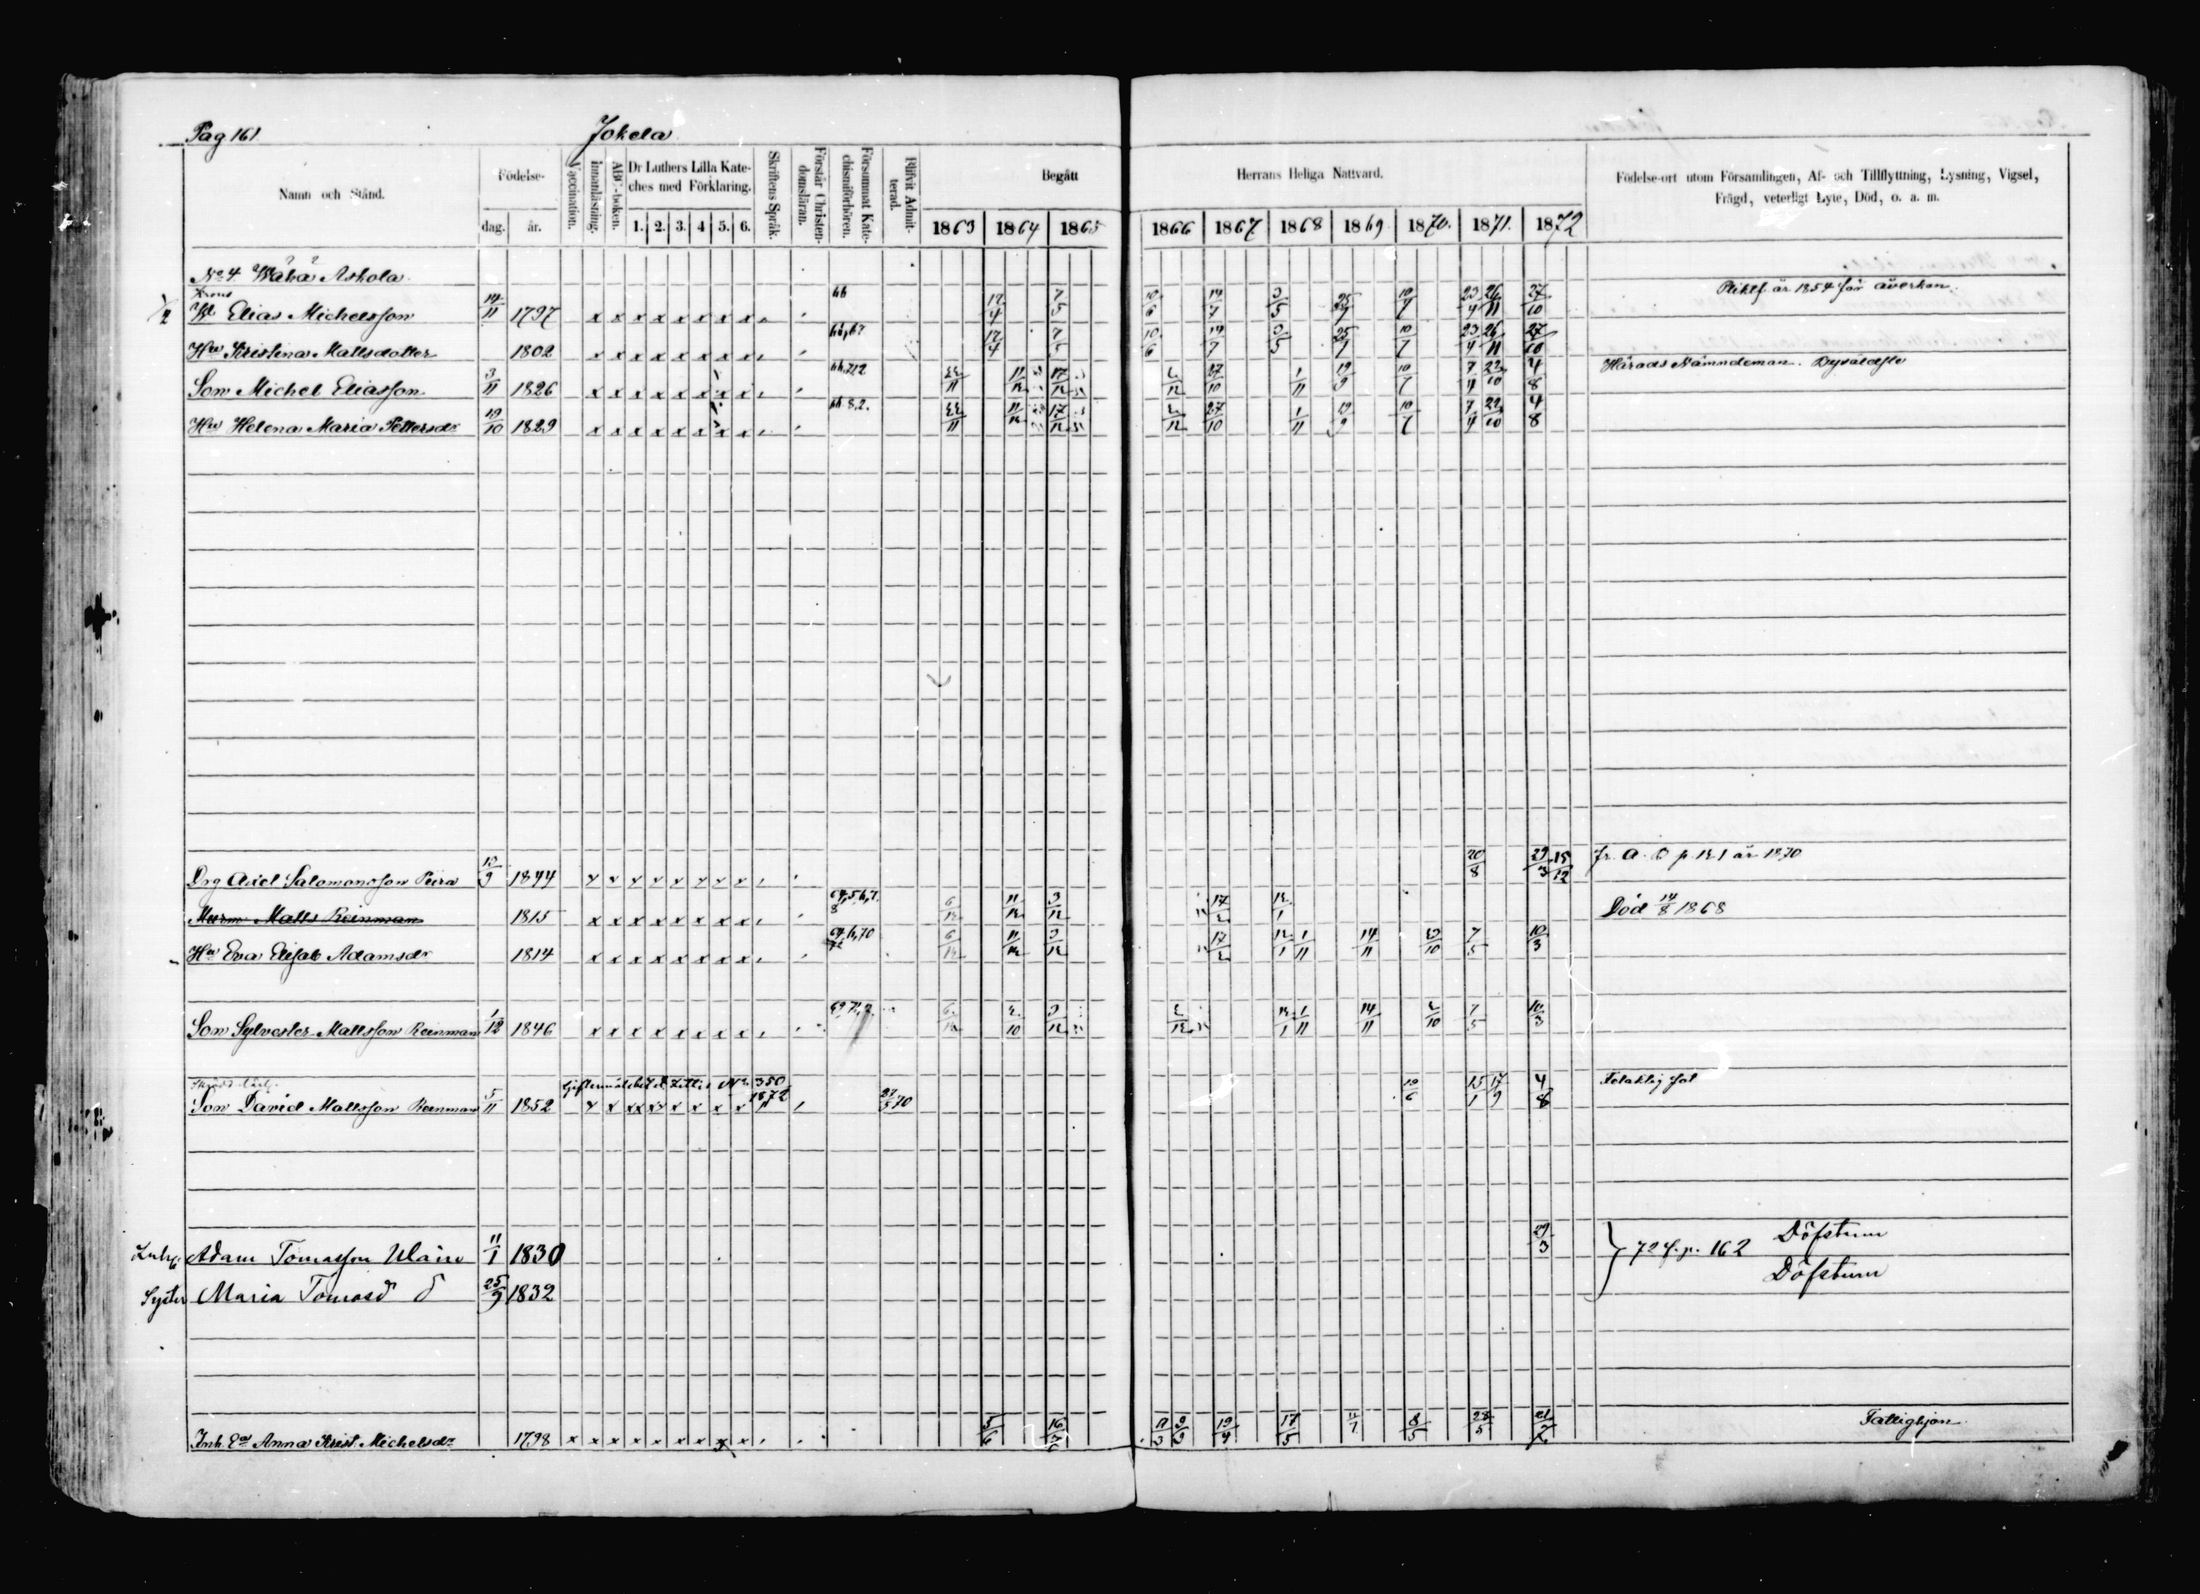 Pag 161
Jokela
Namn och Stånd. Födelse- dag. år. Vaccination. innanläsning. ABC-boken. Dr Luthers Lilla Kate- ches med Förklaring. 1. 2. 3. 4 5. 6. Skriftens Språk. Förstår Christen- domsläran. Försummat Kate- chismiförhören. Blifvit Admit- terad. Begått Herrans Heliga Nattvard. Födelse-ort utom Församlingen, Af- och Tillflyttning, Lysning, Vigsel,
Frägd, veterligt Lyte, Död, o. a. m.
1863 1864 1865 1866 1867 1868 1869 1870. 1871. 1872
No 4 Wähä Askola
Elias Michelsson 14/11 1797 x x x x x x x x 66 17/4 7/5 10/6 14/7 3/5 25/7 10/7 23/4 26/11 27/10 Pliktf. år 1854 för åverkan.
Hu Kristina Mattsdotter 1802 x x x x x x x x 66,67 17/4 7/5 10/6 14/7 3/5 25/7 10/7 23/4 26/11 27/10
Son Michel Eliasson 3/11 1826 x x x x x x x x 11/12 17/12 27/10 1/11 19/9 10/7 7/4 22/10 4/8 Härads Nämndeman.
Hu Helena Maria Pettersdr 19/10 1829 x x x x x x x x 11/12 17/12 27/10 1/11 19/9 10/7 7/4 22/10 4/8
Drg Axel Salomonsson Peira 13/9 1844 x x x x x x x x 20/8 29/3 15/12 fr. A. D p. 121 år 1870
Murm Matts Reinman 1815 x x x x x x x x 6/12 11/12 3/12 17/2 12/1 Död 14/8 1868
Hu Eva Elisab Adamsdr 1814 x x x x x x x x 6/12 11/12 3/12 17/2 12/1 1/11 14/11 7/5 10/3
Son Sylvester Mattsson Reinman 1/12 1846 x x x x x x x x 6/12 2/10 3/12 2/12 12/1 1/11 14/11 2/10 7/5 10/3
Giftermålsbok Littr No 350 1872
Son David Mattsson Reinman 5/11 1852 x x xx x x x x x 70 19/6 15/1 17/9 4/8 Felaktig fot
Adam Tomasson Ulain 11/1 1830 29/3 } 72 f. p. 162 Döfstum
Syster Maria Tomasd 25/9 1832 Döfstum
Inh. Ea Anna Krist. Michelsdr 1798 x x x x x x x x x 5/6 19/4 17/5 8/5 28/5 Fattighjon.